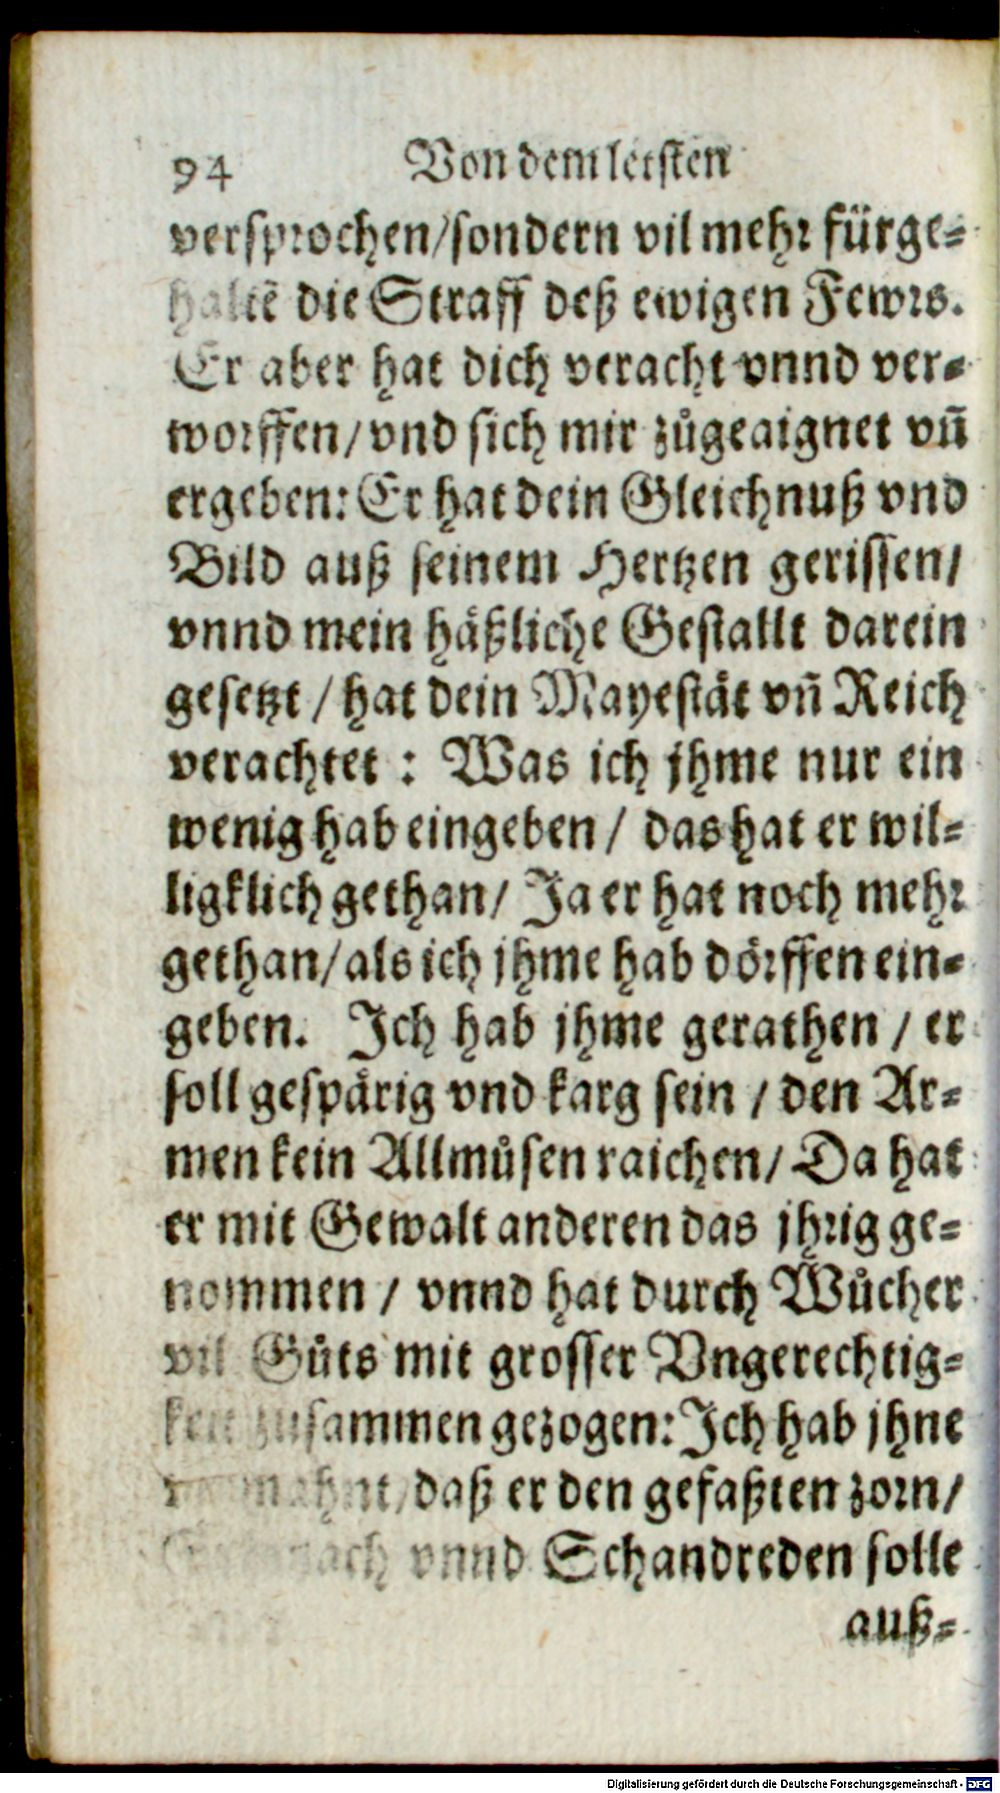 94 Von dem letsten
versprochen/sondern vil mehr fürge-
haltē die Straff deß ewigen Fewrs.
Er aber hat dich veracht vnnd ver-
worffen/vnd sich mir zůgeaignet vñ
ergeben: Er hat dein Gleichnuß vnd
Bild auß seinem Hertzen gerissen/
vnnd mein häßliche Gestallt darein
gesetzt / hat dein Mayestät vñ Reich
verachtet : Was ich jhme nur ein
wenig hab eingeben / das hat er wil-
ligklich gethan/ Ja er hat noch mehr
gethan/als ich jhme hab dörffen ein-
geben. Ich hab jhme gerathen / er
soll gespärig vnd karg sein / den Ar-
men kein Allmůsen raichen/ Da hat
er mit Gewalt anderen das jhrig ge-
nommen / vnnd hat durch Wůcher
vil Gůts mit grosser Vngerechtig-
keit zusammen gezogen: Ich hab jhne
daß er den gefaßten zorn/
vnnd Schandreden solle
auß-
Digitalisierung gefördert durch die Deutsche Forschungsgemeinschaft - DFG